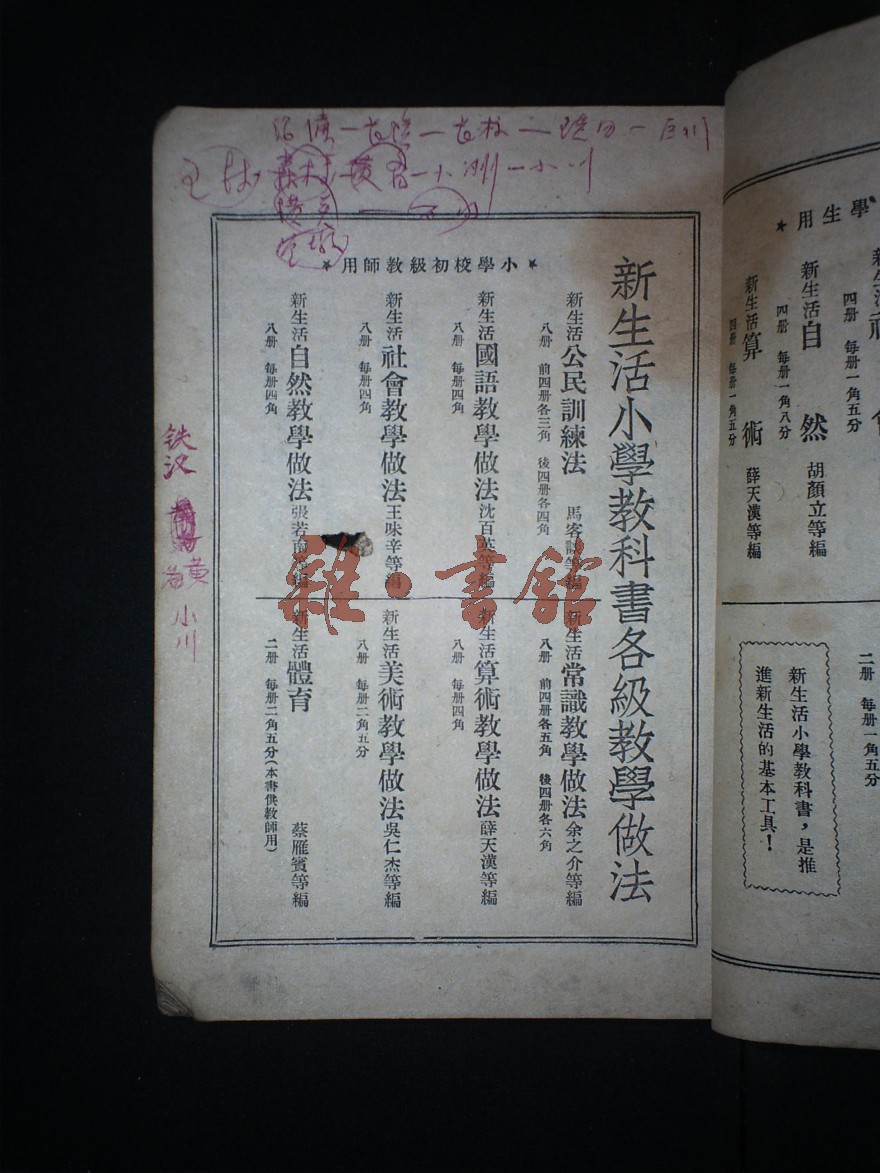 新生活小學教科書各級教學做法
★小學校初級教師用★
新生活公民訓練法 馬客談等編
八冊 前四冊各三角 後四冊各四角
新生活常識教學做法 余之介等編
八冊 前四冊各五角 後四冊各六角
新生活國語教學做法 沈百英等編
八冊 每冊四角
新生活算術教學做法 薛天漢等編
八冊 每冊四角
新生活社會教學做法 王味辛等編
八冊 每冊四角
新生活美術教學做法 吳仁杰等編
八冊 每冊二角五分
新生活自然教學做法 張若南等編
八冊 每冊四角
新生活體育 蔡雁賓等編
二冊 每冊二角五分(本書供教師用)
雜·書館
铁汉
黄
小川
學生用★
四冊 每冊一角五分
新生活自然 胡顏立等編
四冊 每冊一角八分
新生活算術 薛天漢等編
四冊 每冊一角五分
二冊 每冊一角五分
新生活小學教科書,是推
進新生活的基本工具!